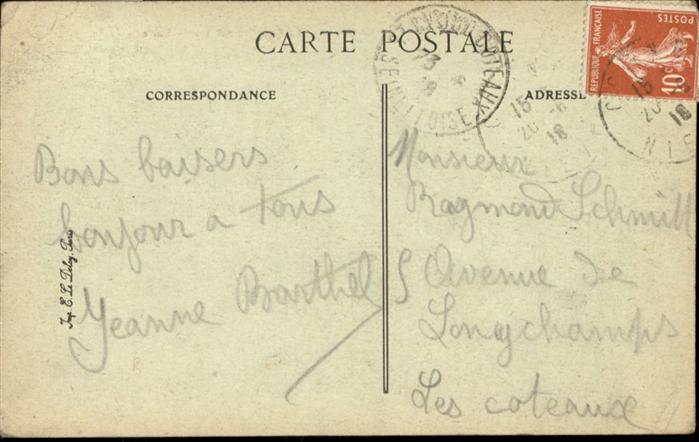 CARTE POSTALE
CORRESPONDANCE
ADRESSE
REPUBLIQUE FRANÇAISE
POSTES
10c
SEINE ET OISE
15
20 -6
18
Bons baisers
bonjour a tous
Jeanne Barthel
Imp. E. Le Deley, Paris
Monsieur
Raymond Schmitt
5 Avenue de
Longchamps
Les coteaux